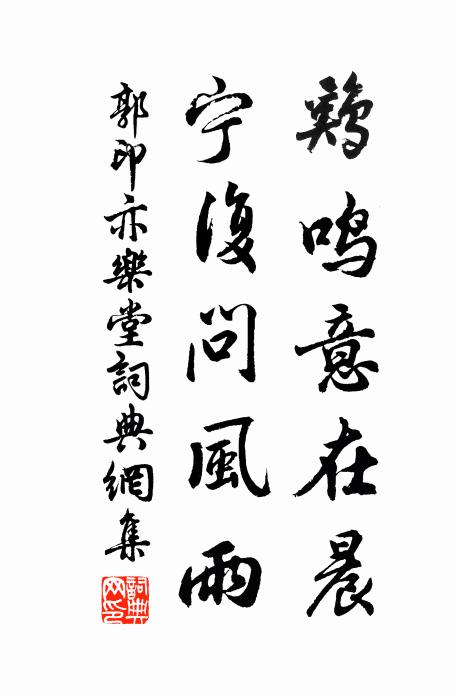 鷄鳴意在晨
宁復問風雨
郭印亦樂堂詞典網集
詞典網印